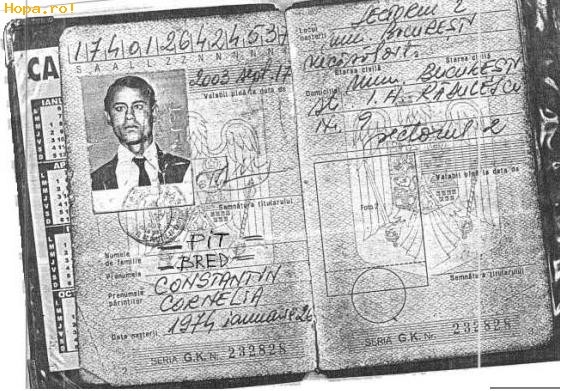 Hopa.ro!
CA
IANU
AP
I
OC
L M M J V S D
1740126424537
S A A L L Z Z N N N N N N
2003 Sept. 17
Valabil pînă la data de
Semnătura titularului
Numele de familie
PIT
Prenumele
BRED
Prenumele părinților
CONSTANTIN
CORNELIA
Data nașterii
1974 ianuarie 26
SERIA G.K. Nr. 232828
2
Locul nașterii
SECTORUL 2
mun. BUCUREȘTI
necăsătorit
Starea civilă
Starea civilă
Domiciliu
Mun. BUCUREȘTI
str. I.H. RĂDULESCU
Nr. 9
sectorul 2
Foto 2
Valabil pînă la data de
Semnătura titularului
SERIA G.K. Nr. 232828